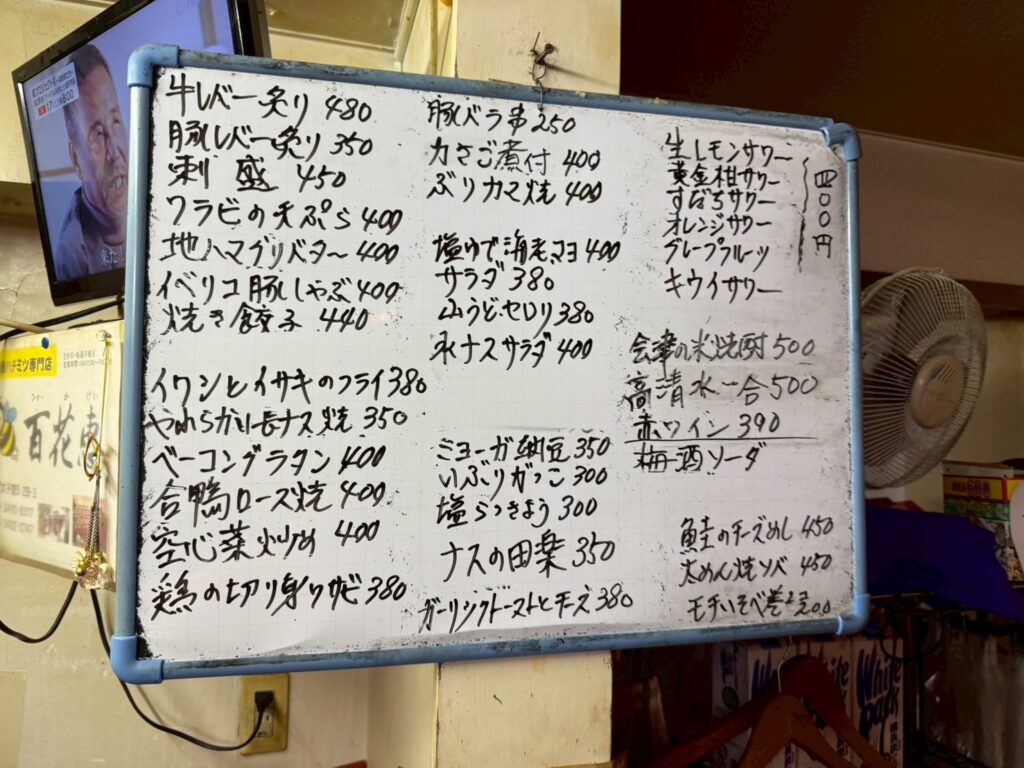 牛レバー炙り 480
豚レバー炙り 350
刺盛 450
ワラビの天ぷら 400
地ハマグリバター 400
イベリコ豚しゃぶ 400
焼き餃子 440
イワシとイサキのフライ 380
やわらかい長ナス焼 350
ベーコングラタン 400
合鴨ロース焼 400
空心菜炒め 400
鶏の切り身ワサビ 380
豚バラ串 250
カさご煮付 400
ぶりカマ焼 400
塩ゆで海老マヨ 400
サラダ 380
山うどセロリ 380
水ナスサラダ 400
ミョーガ納豆 350
いぶりがっこ 300
塩らっきょう 300
ナスの田楽 350
ガーリックトーストとチーズ 380
生レモンサワー
黄金柑サワー
すだちサワー
オレンジサワー
グレープフルーツ
キウイサワー
四〇〇円
会津の米焼酎 500
高清水一合 500
赤ワイン 390
梅酒ソーダ
鮭のチーズめし 450
太めん焼ソバ 450
モチいそべ巻2コ 200
ハチミツ専門店
百花恵
White